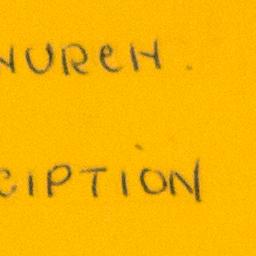 HURCH.
CIPTION